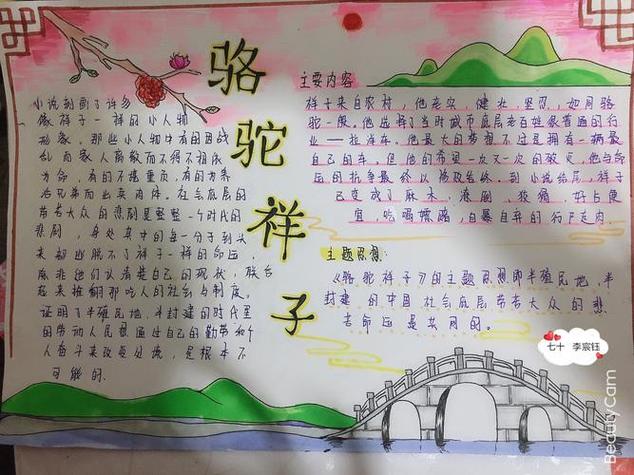 骆驼祥子
小说刻画了许多
像祥子一样的小人物
形象，那些小人物中有的因战
乱而家人离散而不得不相依
为命，有的不堪重负，有的为养
活兄弟而出卖肉体。社会底层的
劳苦大众的悲剧是整整一个时代的
悲剧，身处其中的每一分子到头
来都逃脱不了祥子一样的命运，
除非他们认清楚自己的现状，联合
起来推翻那吃人的社会与制度。
证明了半殖民地、半封建的时代里
的劳动人民想通过自己的勤劳和个
人奋斗来改变处境，是根本不
可能的.
主要内容
祥子来自农村，他老实、健壮、坚忍，如同骆
驼一般。他选择了当时城市底层老百姓很普通的行
业——拉洋车。他最大的梦想不过是拥有一辆最
自己的车。但他的希望一次又一次的破灭，他与命
运的抗争最终以惨败告终。到小说结尾，祥子
已变成了麻木、潦倒、狡猾、好占便
宜、吃喝嫖赌，自暴自弃的行尸走肉.
主题思想:
《骆驼祥子》的主题思想即半殖民地，半
封建的中国社会底层劳苦大众的悲
苦命运是共同的。
七十 李宸钰
BeautyCam